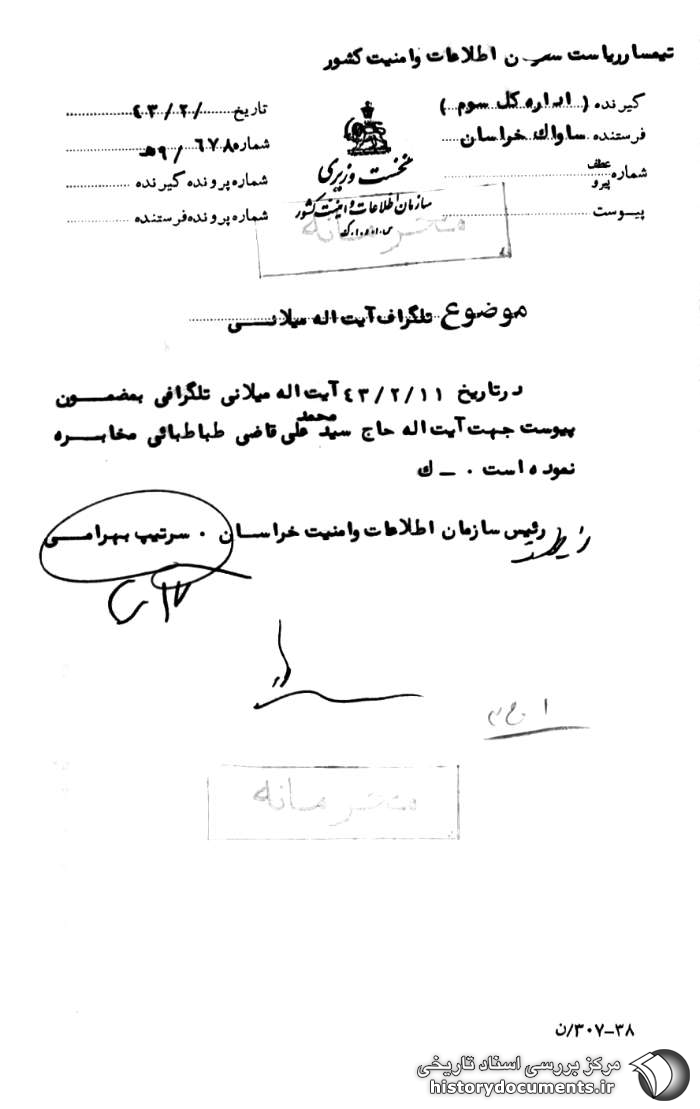 تیمسار ریاست سازمان اطلاعات و امنیت کشور
گیرنده ( اداره کل سوم )
فرستنده ساواک خراسان
شماره عطف پیرو
پیوست
نخست وزیری
سازمان اطلاعات و امنیت کشور
س.ا.و.ا.ک
تاریخ /۴۳/۲
شماره ۶۷۸ /۹ﻫ
شماره پرونده گیرنده
شماره پرونده فرستنده
محرمانه
موضوع تلگراف آیت اله میلانی
در تاریخ ۴۳/۲/۱۱ آیت اله میلانی تلگرافی بمضمون
پیوست جهت آیت اله حاج سید محمد علی قاضی طباطبائی مخابره
نموده است ۰ ــ ک
رئیس سازمان اطلاعات و امنیت خراسان ۰ سرتیپ بهرامی
محرمانه
۳۰۷-۳۸/ن
مرکز بررسی اسناد تاریخی
historydocuments.ir